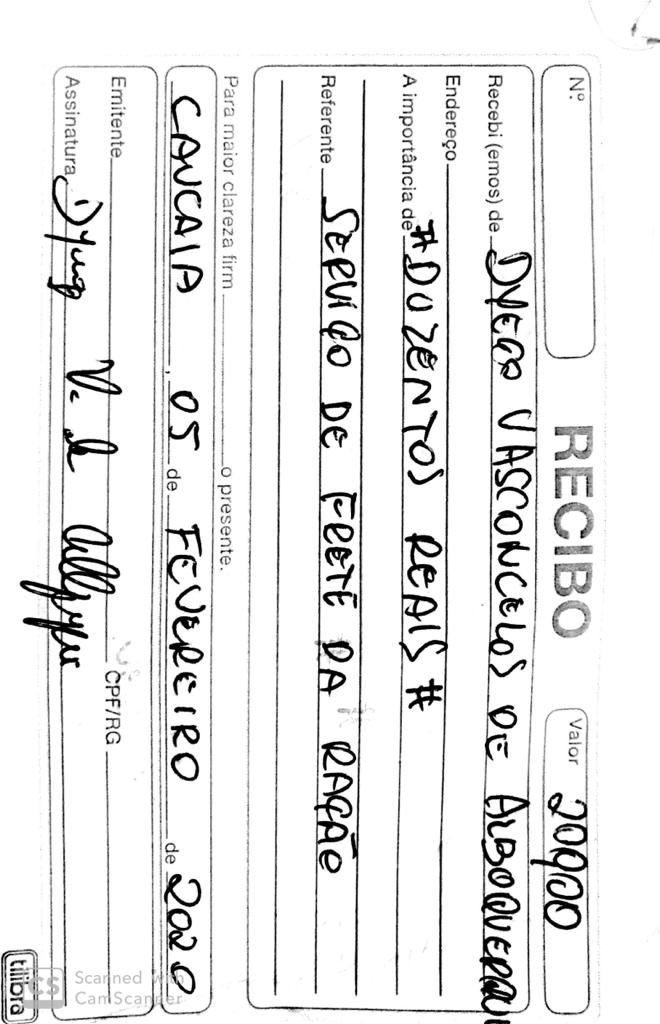 Nº
RECIBO
Valor 200,00
Recebi (emos) de DYEGO VASCONCELOS DE ALBOQUERQU
Endereço
A importância de # DUZENTOS REAIS #
Referente SERVIÇO DE FRETE DA RAÇÃO
Para maior clareza firm o presente.
CAUCAIA, 05 de FEVEREIRO de 2020
Emitente CPF/RG
Assinatura
tilibra
CS Scanned with
CamScanner